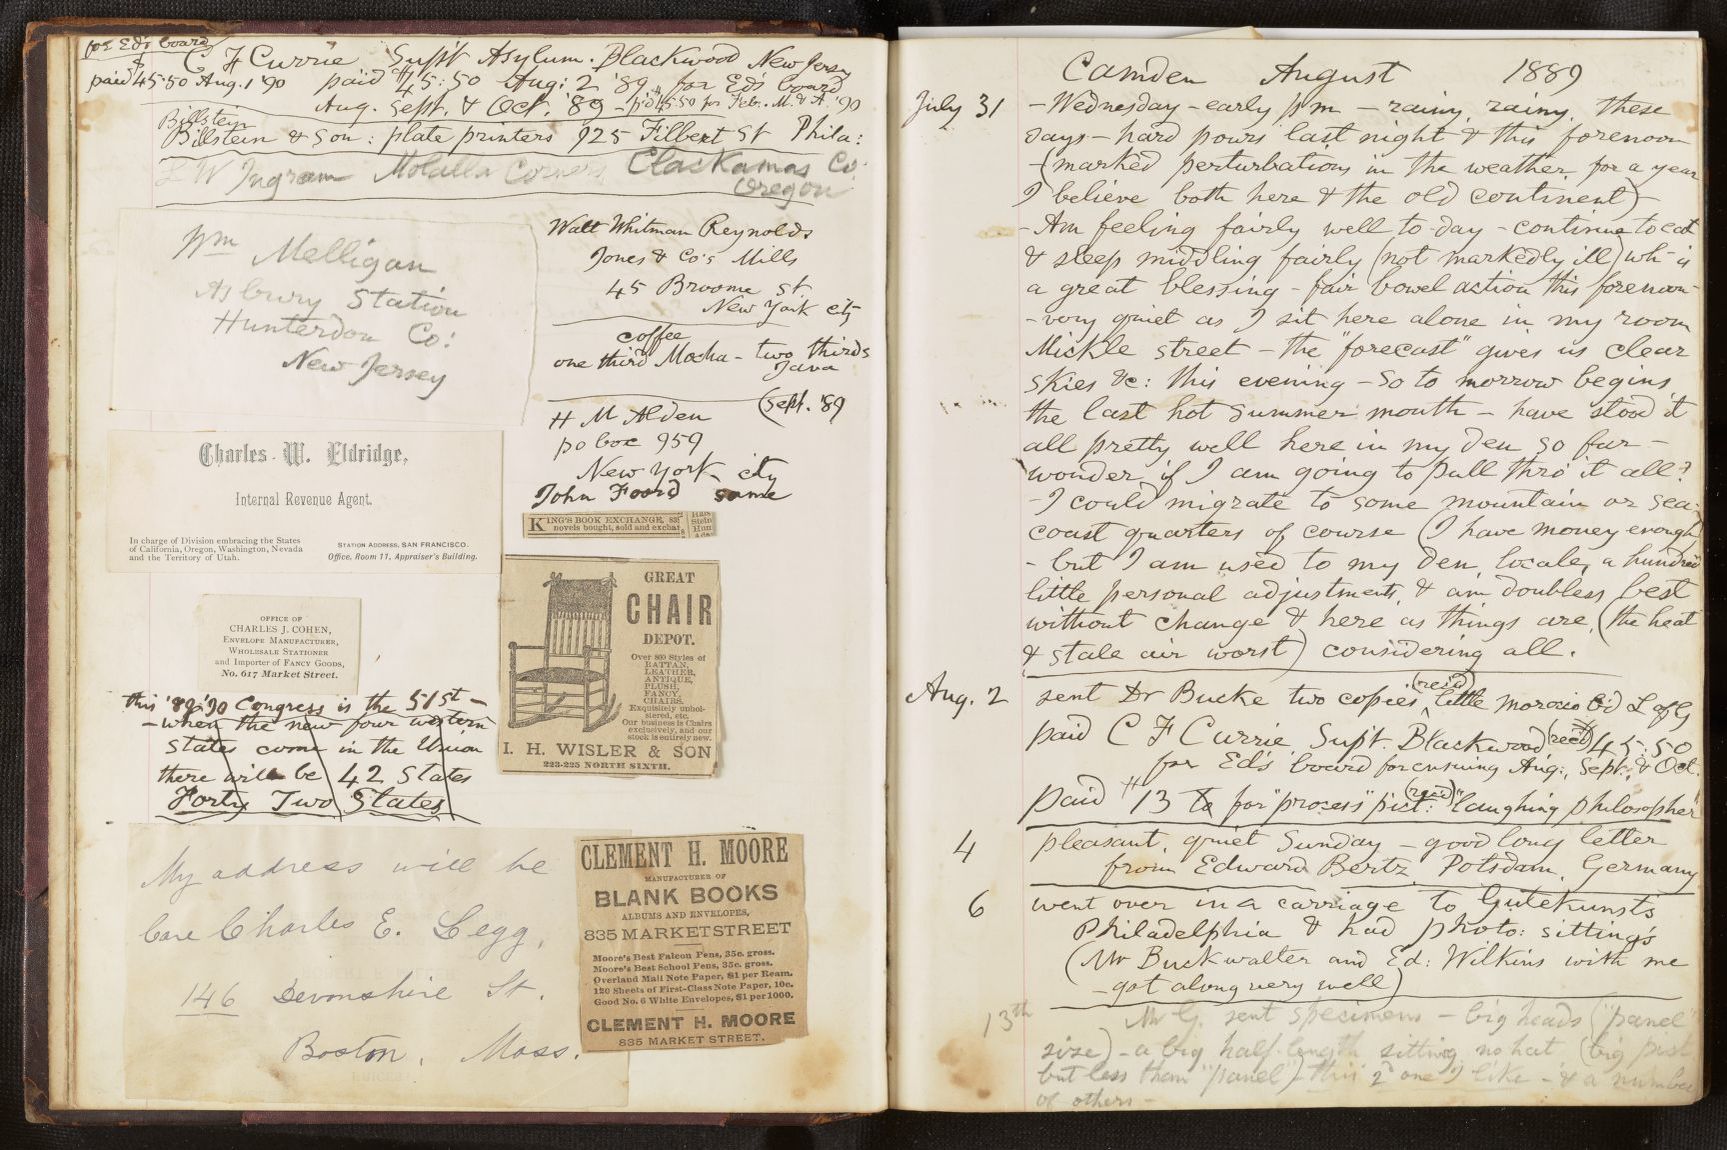 for Ed's board
C F Currie Sup't Asylum. Blackwood New Jersey
paid $45.50 Aug. 1 '90 paid $45:50 Aug: 2 '89, for Ed's board
Aug. Sept. & Oct. '89 – p'd 45.50 for Feb. M. & A. '90
Billstein
Billstein & Son: plate printers 925 Filbert St Phila:
L W Ingram Molalla Corners Clackamas Co:
Oregon
Wm Melligan
Asbury Station
Hunterdon Co:
New Jersey
Walt Whitman Reynolds
Jones & Co's Mills
45 Broome st
New York city
coffee
one third Mocha – two thirds
Java
(Sept. '89
H M Alden
po box 959
New York city
John Foord same
KING'S BOOK EXCHANGE, 83
novels bought, sold and exchat
Stein
Hun
Charles W. Eldridge,
Internal Revenue Agent.
In charge of Division embracing the States
of California, Oregon, Washington, Nevada
and the Territory of Utah.
STATION ADDRESS, SAN FRANCISCO.
Office, Room 11, Appraiser's Building.
OFFICE OF
CHARLES J. COHEN,
ENVELOPE MANUFACTURER,
WHOLESALE STATIONER
and Importer of FANCY GOODS,
No. 617 Market Street.
GREAT
CHAIR
DEPOT.
Over 800 Styles of
RATTAN,
LEATHER,
ANTIQUE,
PLUSH,
FANCY
CHAIRS.
Exquisitely uphol-
stered, etc.
Our business is Chairs
exclusively, and our
stock is entirely new.
I. H. WISLER & SON
223-225 NORTH SIXTH.
this '89-'90 Congress is the 51st –
– when the new four western
States come in the Union
there will be 42 States
Forty Two States
My address will be
Care Charles E. Legg,
146 Devonshire St.
Boston, Mass.
CLEMENT H. MOORE
MANUFACTURER OF
BLANK BOOKS
ALBUMS AND ENVELOPES,
835 MARKET STREET
Moore's Best Falcon Pens, 35c. gross.
Moore's Best School Pens, 35c. gross.
Overland Mail Note Paper, $1 per Ream.
120 Sheets of First-Class Note Paper, 10c.
Good No. 6 White Envelopes, $1 per 1000.
CLEMENT H. MOORE
835 MARKET STREET.
Camden August 1889
July 31 – Wednesday – early p m – rainy, rainy, these
days – hard pours last night & this forenoon
– (marked perturbations in the weather, for a year
I believe both here & the old continent) –
– Am feeling fairly well to-day – continue to eat
& sleep middling fairly (not markedly ill) wh- is
a great blessing – fair bowel action this forenoon
– very quiet as I sit here alone in my room
Mickle street – the "forecast" gives us clear
skies &c: this evening – So to morrow begins
the last hot summer month – have stood it
all pretty well here in my den so far –
wonder if I am going to pull thro' it all?
– I could migrate to some mountain or sea-
coast quarters of course (I have money enough)
– but I am used to my den, locale, a hundred
little personal adjustments, & am doubless best
without change & here as things are, (the heat
& stale air worst) considering all.
Aug. 2 sent Dr Bucke two copies (rec'd) little morocco b'd L of G
paid C F Currie, Supt. Blackwood (rec'd) $45:50
for Ed's board for ensuing Aug:, Sept., & Oct.
paid $13 to for "process" pict: (rec'd) "laughing philosopher"
4 pleasant, quiet Sunday – good long letter
from Edward Bertz, Potsdam, Germany
6 went over in a carriage to Gutekunst's
Philadelphia & had photo: sittings
(Mr Buckwalter and Ed: Wilkins with me
– got along very well)
13th Mr G. sent specimens – big heads ("panel"
size) – a big half-length sitting, no hat (big
but less than "panel") – this 2d one I like – & a number
of others –